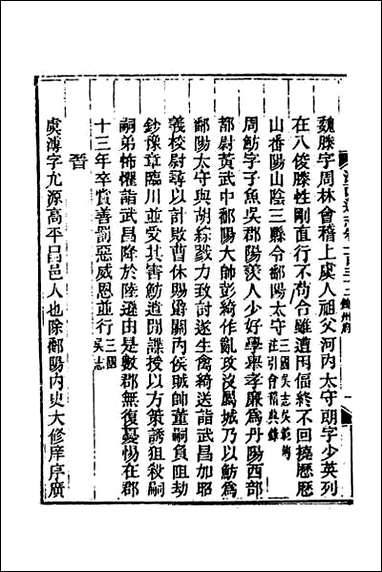 魏滕字周林會稽上虞人祖父河內太守朗字少英列
在八俊滕性剛直行不苟合雖遭困偪終不回撓歷歷
山番陽山陰三縣令鄱陽太守三國吳志吳範傳注引會稽典錄
周魴字子魚吳郡陽羨人少好學舉孝廉為丹陽西部
都尉黃武中鄱陽大帥彭綺作亂攻沒屬城乃以魴為
鄱陽太守與胡綜戮力致討遂生禽綺送詣武昌加昭
義校尉尋以計敗曹休賜爵關內侯賊帥董嗣負阻劫
鈔豫章臨川並受其害魴遣間諜授以方策誘狙殺嗣
嗣弟怖懼詣武昌降於陸遜由是數郡無復憂惕在郡
十三年卒賞善罰惡威恩並行三國吳志
晉
虞溥字允源高平昌邑人也除鄱陽內史大修庠序廣